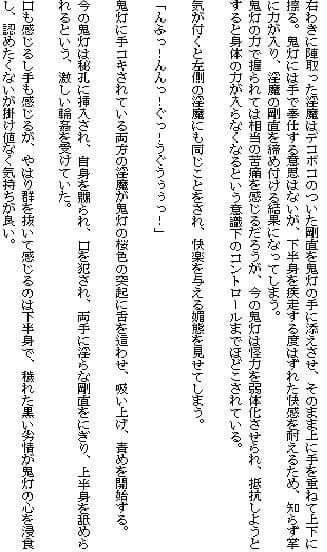 右わきに陣取った淫魔はデコボコのついた剛直を鬼灯の手に添えさせ、そのまま上に手を重ねて上下に
擦る。鬼灯には手で奉仕する意思はないが、下半身を疾走する度はずれた快感を耐えるため、知らず掌
に力が入り、淫魔の剛直を締め付ける結果になってしまう。
鬼灯の力で握られては相当の苦痛を感じるだろうが、今の鬼灯は怪力を弱体化させられ、抵抗しようと
すると身体の力が入らなくなるという意識下のコントロールまでほどこされている。
気が付くと左側の淫魔にも同じことをされ、快楽を与える媚態を見せてしまう。
「んぶっ！んんっ！ぐっ！うぐうぅぅっ！」
鬼灯に手コキされている両方の淫魔が鬼灯の桜色の突起に舌を這わせ、吸い上げ、責めを開始する。
今の鬼灯は秘孔に挿入され、自身を嬲られ、口を犯され、両手に淫らな剛直をにぎり、上半身を舐めら
れるという、激しい輪姦を受けていた。
口も感じるし手も感じるが、やはり群を抜いて感じるのは下半身で、穢れた黒い劣情が鬼灯の心を浸食
し、認めたくないが掛け値なく気持ちが良い。